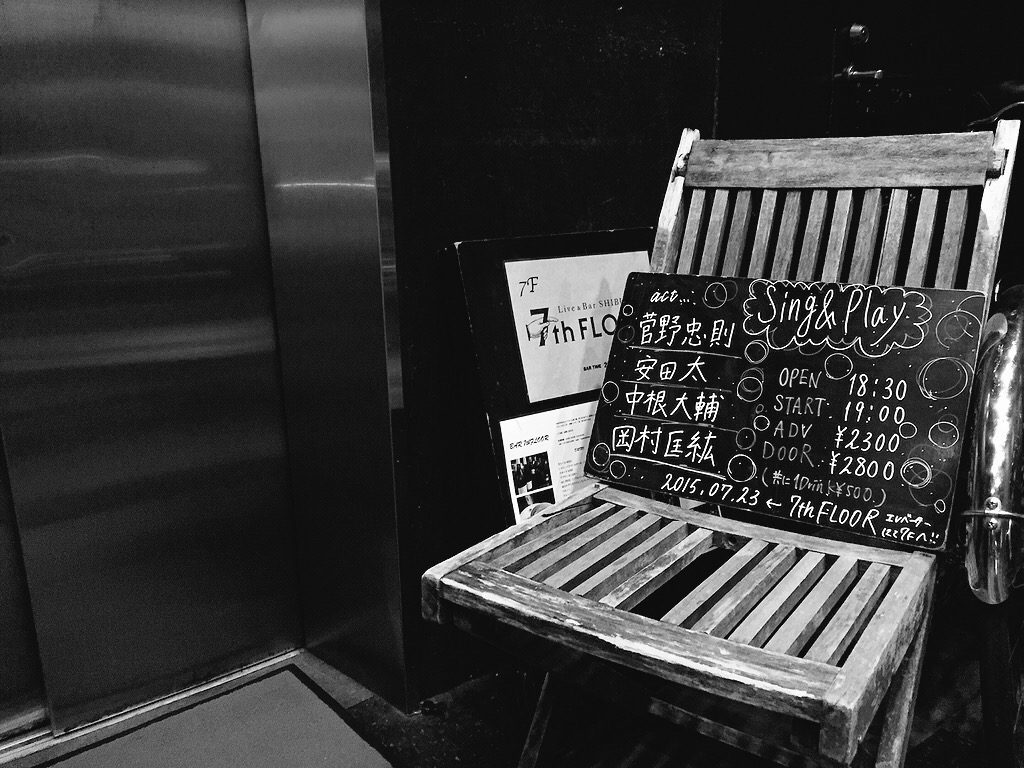 7F
Live & Bar SHIBU
7th FLO
BAR TIME
BAR 7thFLOOR
act...
菅野忠則
安田太
中根大輔
岡村匡紘
Sing&Play
OPEN 18:30
START 19:00
ADV ¥2300
DOOR ¥2800
(共に1Drink¥500.)
2015.07.23 ← 7thFLOOR
エレベーター
にて7Fへ!!